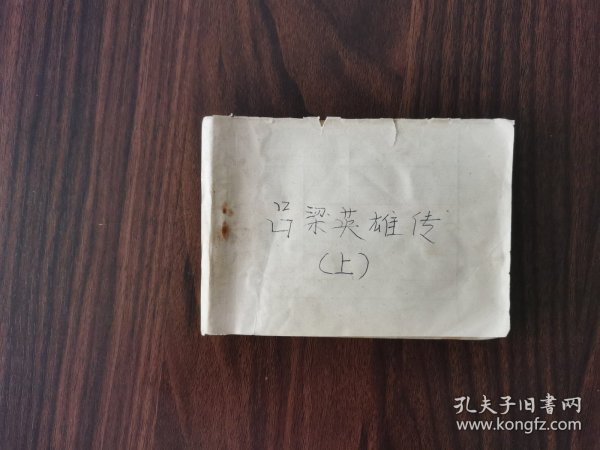 吕梁英雄传
(上)
孔夫子旧書网
www.kongfz.com